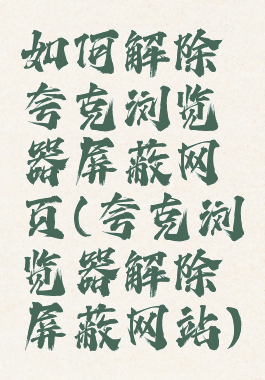 如何解除
夸克浏览
器屏蔽网
页(夸克浏
览器解除
屏蔽网站)